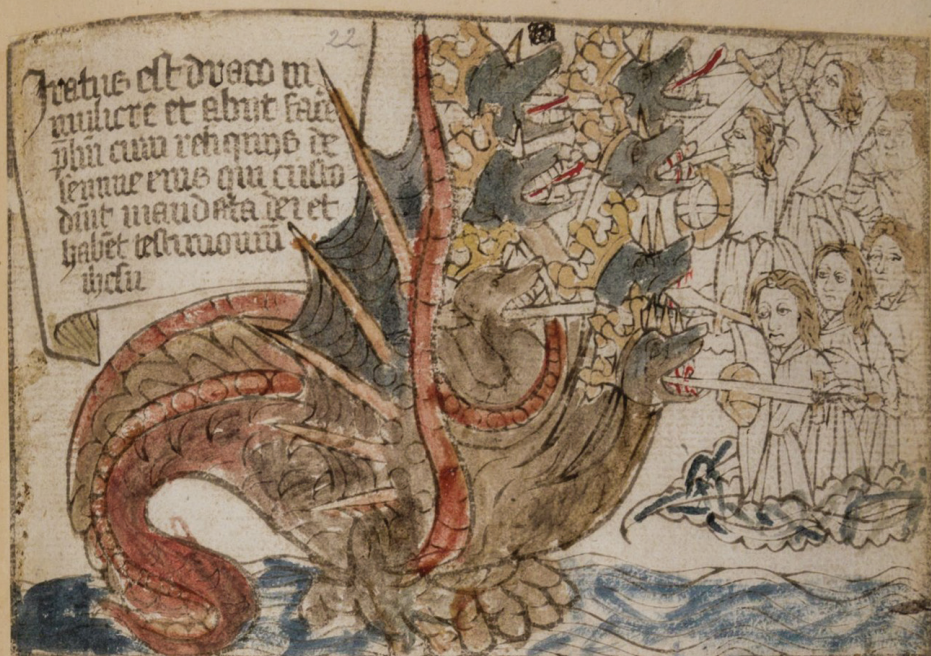 22
Iratus est draco in
muliere et abiit face
p̄liū cum reliquis de
semine eius qui custo
diūt mandata dei et
habēt testimoniū
ihesu